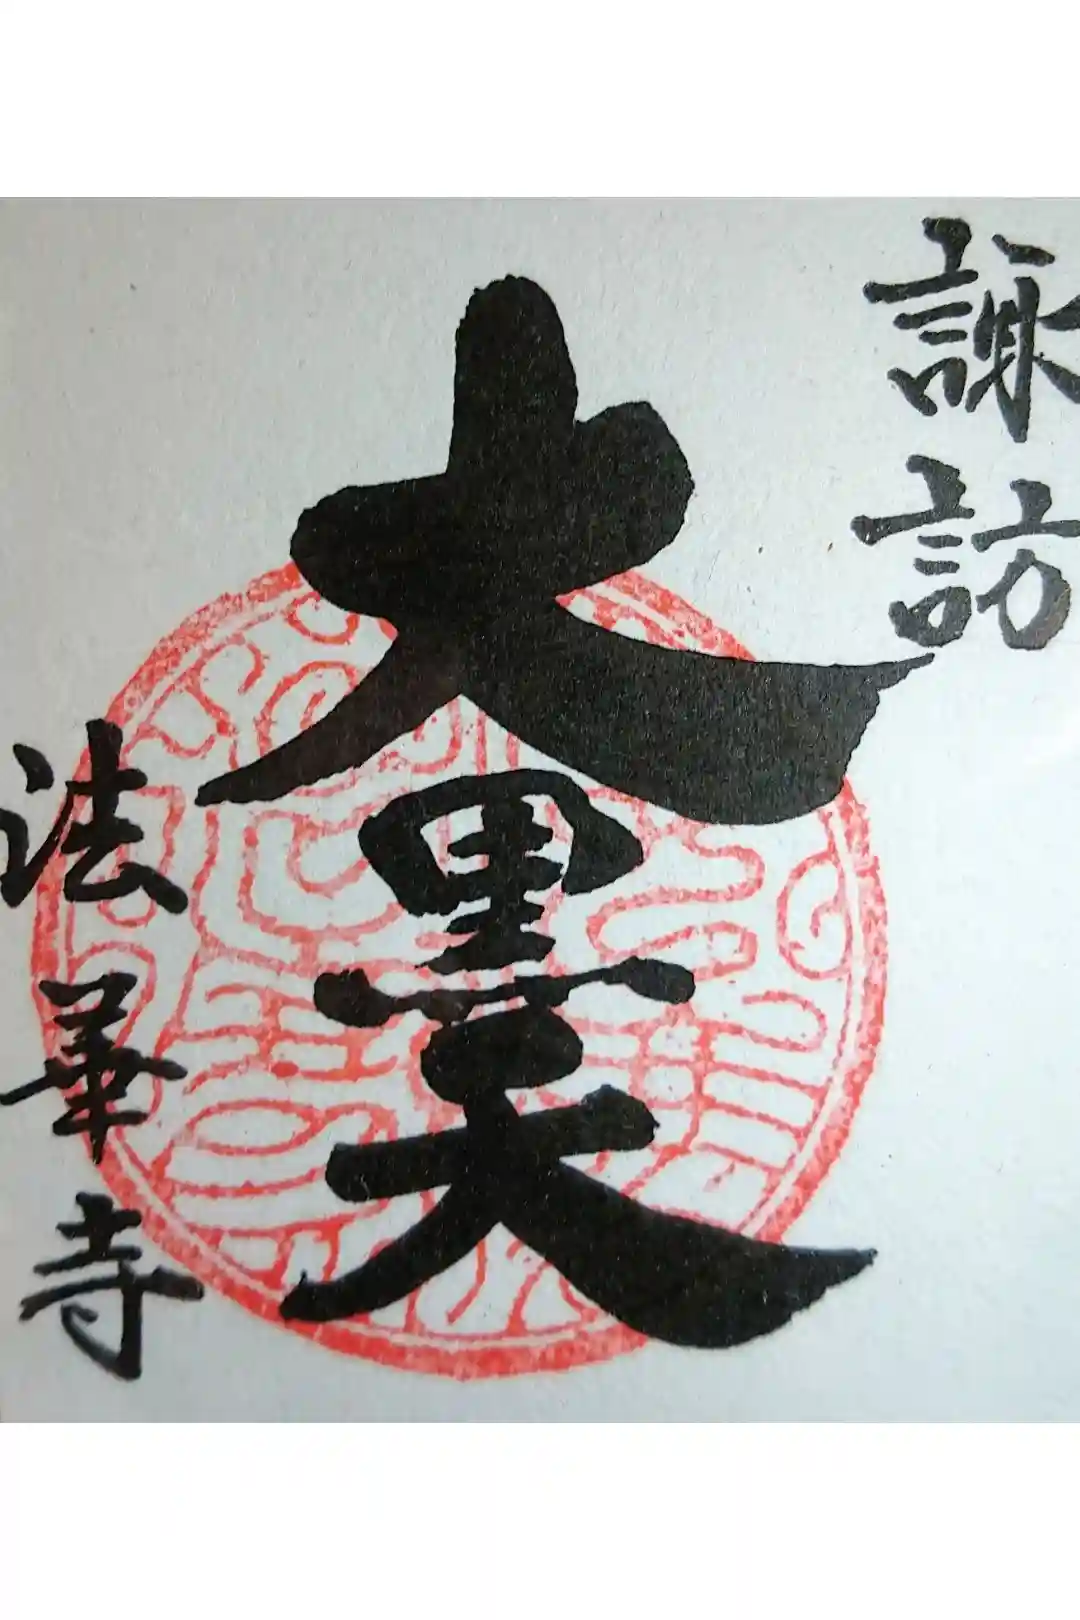 諏訪
大黒天
法華寺